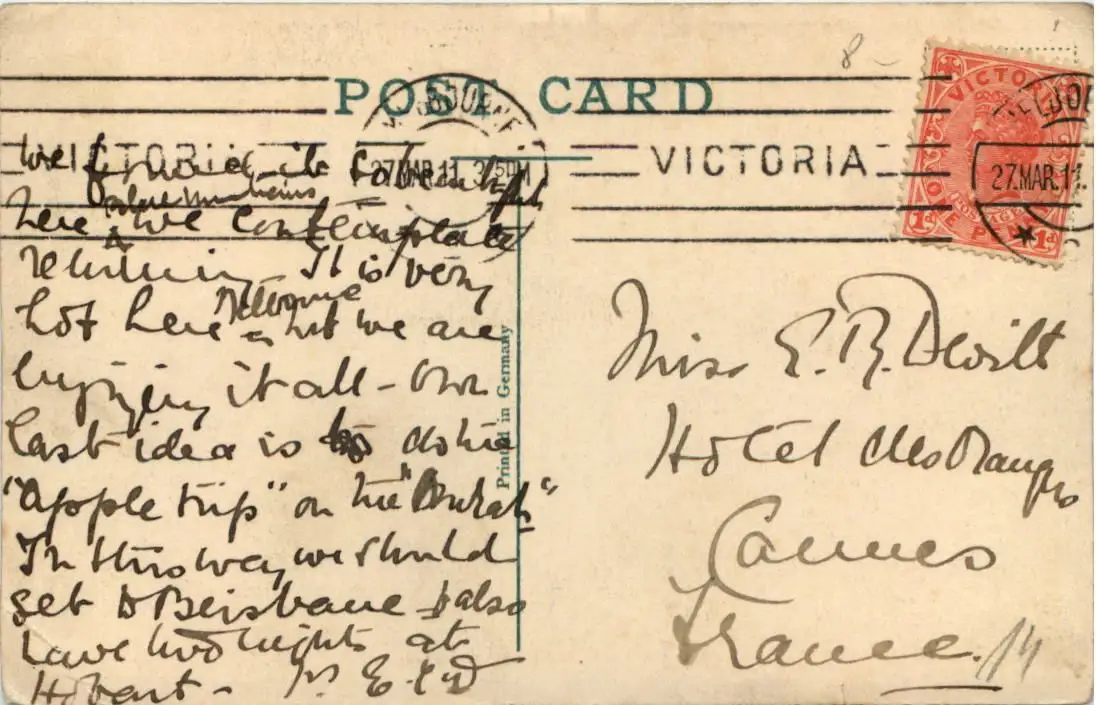 POST CARD
MELBOURNE
27.MAR.11
VICTORIA
VICTORIA
ONE PENNY
1d 1d
POSTAGE
MELBO
27.MAR.11.
VICTORIA
8 -
We
here we contemplate
returning - It is very
hot here Melbourne but we are
enjoying it all - Our
last idea is to do the
"apple trip" on the
In this way we should
get to Brisbane & also
have two nights at
Hobart -
Printed in Germany
Miss E. R. Dewitt
Hotel des Oranges
Cannes
France.